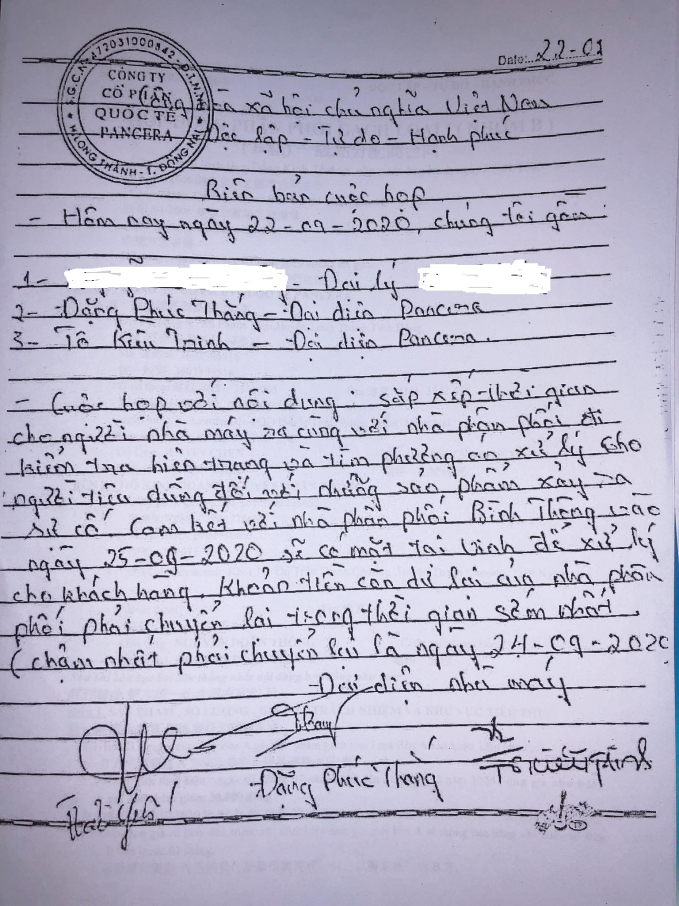 Date: 22-09
S.G.C.N: 472031000842 - Đ.T.N.N
CÔNG TY
CỔ PHẦN
QUỐC TẾ
PANCERA
H. LONG THÀNH - T. ĐỒNG NAI
Cộng hòa xã hội chủ nghĩa Việt Nam
Độc lập - Tự do - Hạnh phúc
Biên bản cuộc họp
- Hôm nay ngày 22-09-2020, chúng tôi gồm:
1- - Đại lý
2- Đặng Phúc Thắng - Đại diện Pancera
3- Tô Kiều Trinh - Đại diện Pancera.
- Cuộc họp với nội dung: sắp xếp thời gian
cho người nhà máy ra cùng với nhà phân phối đi
kiểm tra hiện trạng và tìm phương án xử lý cho
người tiêu dùng đối với những sản phẩm xảy ra
sự cố. Cam kết với nhà phân phối Bình Thông vào
ngày 25-09-2020 sẽ có mặt tại Vinh để xử lý
cho khách hàng. Khoản tiền còn dư lại của nhà phân
phối phải chuyển lại trong thời gian sớm nhất.
(chậm nhất phải chuyển lại là ngày 24-09-2020
Đại diện nhà máy
Đặng Phúc Thắng
Tô Kiều Trinh